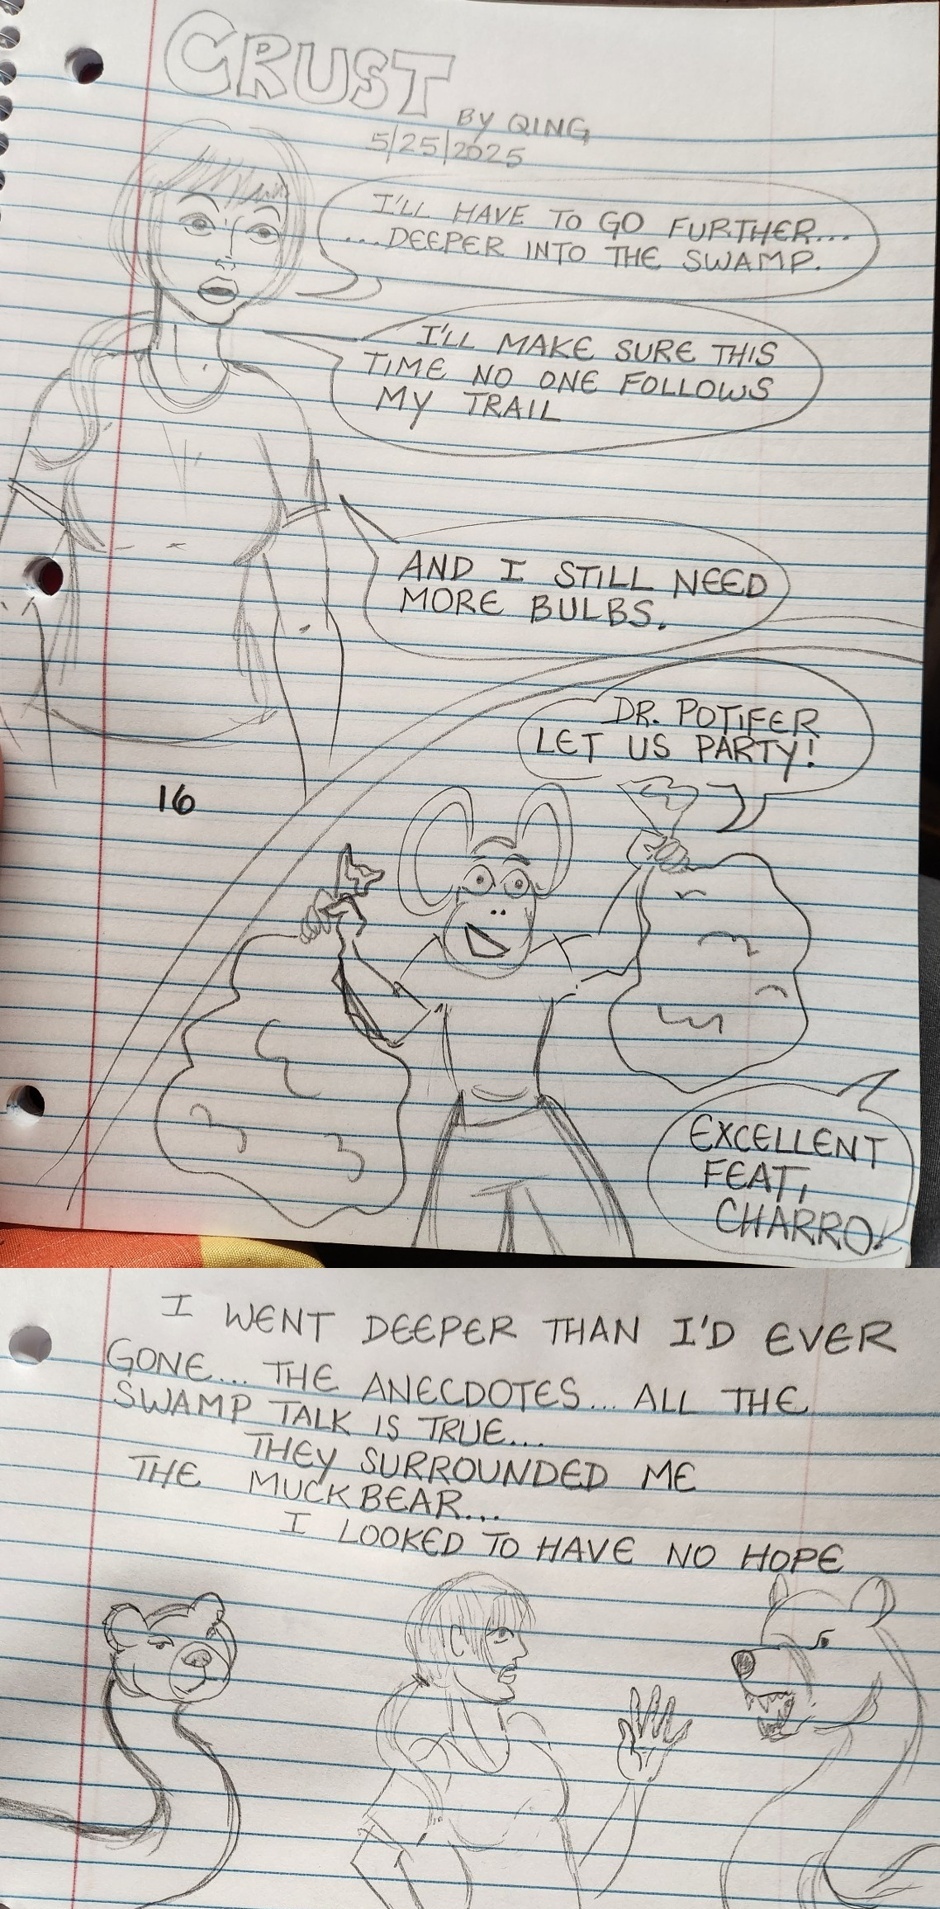 CRUST
BY QING
5/25/2025
I'LL HAVE TO GO FURTHER...
...DEEPER INTO THE SWAMP.
I'LL MAKE SURE THIS
TIME NO ONE FOLLOWS
MY TRAIL
AND I STILL NEED
MORE BULBS.
DR. POTIFER
LET US PARTY!
16
EXCELLENT
FEAT,
CHARRO!
I WENT DEEPER THAN I'D EVER
GONE... THE ANECDOTES... ALL THE
SWAMP TALK IS TRUE...
THEY SURROUNDED ME
THE MUCKBEAR...
I LOOKED TO HAVE NO HOPE